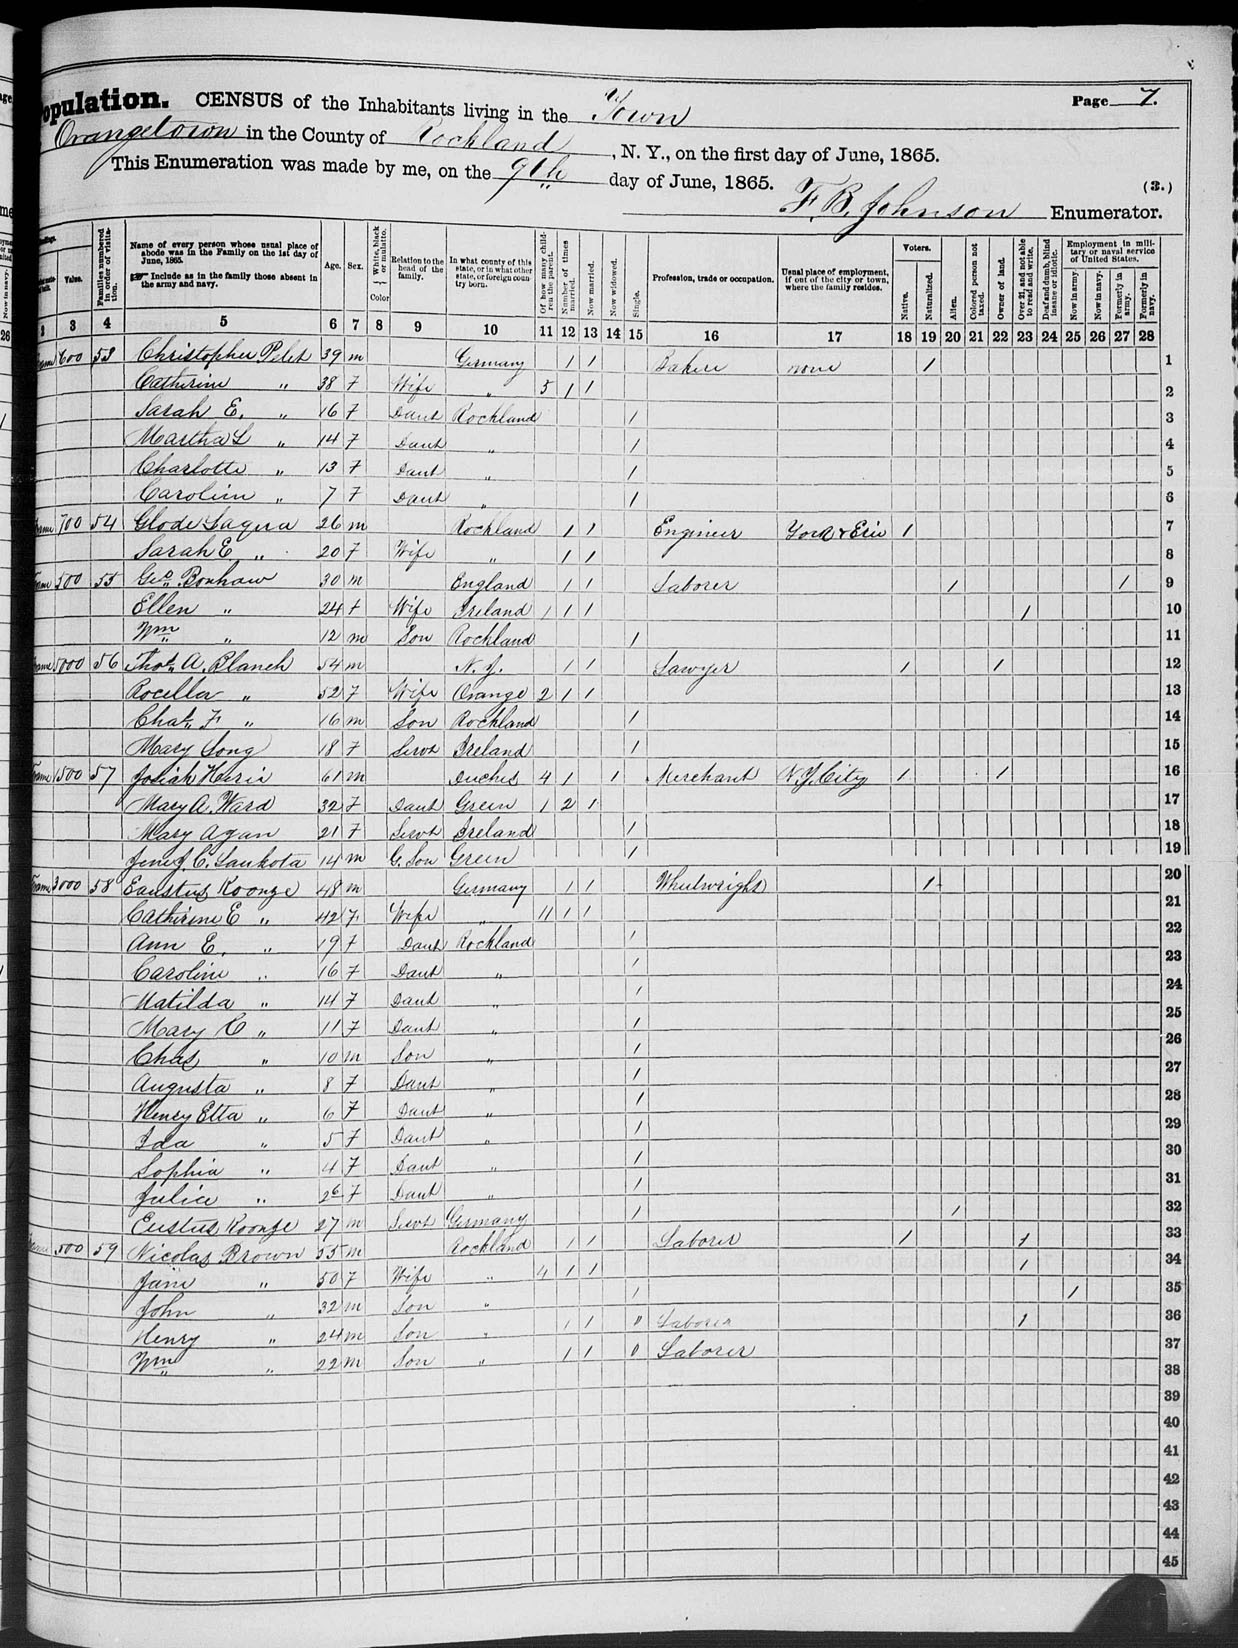 opulation. CENSUS of the Inhabitants living in the Town Page 7.
Orangetown in the County of Rockland, N. Y., on the first day of June, 1865.
This Enumeration was made by me, on the 9th day of June, 1865.
(3.)
F. B. Johnson Enumerator.
Value. Families numbered in order of visitation. Name of every person whose usual place of abode was in the Family on the 1st day of June, 1865. Include as in the family those absent in the army and navy. Age. Sex. White, black or mulatto. Color Relation to the head of the family. In what county of this state, or in what other state, or foreign country born. Of how many children the parent. Number of times married. Now married. Now widowed. Single. Profession, trade or occupation. Usual place of employment, if out of the city or town, where the family resides. Voters. Native. Naturalized. Alien. Colored person not taxed. Owner of land. Over 21, and not able to read and write. Deaf and dumb, blind insane or idiotic. Employment in military or naval service of United States. Now in army. Now in navy. Formerly in army. Formerly in navy.
2 3 4 5 6 7 8 9 10 11 12 13 14 15 16 17 18 19 20 21 22 23 24 25 26 27 28
600 53 Christopher Pelet 39 m Germany 1 1 Baker none 1 1
Catherine " 38 F Wife " 5 1 1 2
Sarah E. " 16 F Daut Rockland 1 3
Martha L " 14 F Daut " 1 4
Charlotte " 13 F Daut " 1 5
Carolin " 7 F Daut " 1 6
700 54 Glode 26 m Rockland 1 1 Engineer York & Erie 1 7
Sarah E " 20 F Wife " 1 1 8
500 55 Geo. Bonhaw 30 m England 1 1 Laborer 1 1 9
Ellen " 24 F Wife Ireland 1 1 1 1 10
Wm " 12 m Son Rockland 1 11
5000 56 Thos. A. Blanch 54 m N. Y. 1 1 Lawyer 1 1 12
Rocella " 52 F Wife Orange 2 1 1 13
Chas. F " 16 m Son Rockland 1 14
Mary Long 18 F Servt Ireland 1 15
1500 57 Josiah 61 m Duches 4 1 1 Merchant N.Y. City 1 1 16
Mary A. Ward 32 F Daut Green 1 2 1 17
Mary Agan 21 F Servt Ireland 1 18
C. 14 m G. Son Green 1 19
3000 58 Eaustus Koonze 48 m Germany 1 1 Wheelwright 1 20
Catherine E " 42 F Wife " 11 1 1 21
Ann E. " 19 F Daut Rockland 1 22
Carolin " 16 F Daut " 1 23
Matilda " 14 F Daut " 1 24
Mary C " 11 F Daut " 1 25
Chas " 10 m Son " 1 26
Augusta " 8 F Daut " 1 27
Henry Etta " 6 F Daut " 1 28
Ida " 5 F Daut " 1 29
Sophia " 4 F Daut " 1 30
Julia " F Daut " 1 31
Eustus Koonze 27 m Servt Germany 1 1 32
500 59 Nicolas Brown 55 m Rockland 1 1 Laborer 1 1 33
Jane " 50 F Wife " 4 1 1 1 34
John " 32 m Son " 1 1 35
Henry " 24 m Son " 1 1 Laborer 1 36
Wm " 22 m Son " 1 1 Laborer 37
38
39
40
41
42
43
44
45